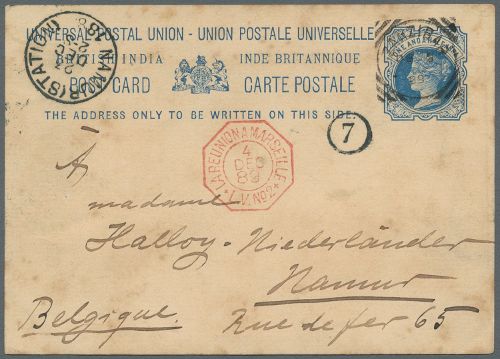 UNIVERSAL POSTAL UNION - UNION POSTALE UNIVERSELLE
BRITISH INDIA INDE BRITANNIQUE
POST CARD CARTE POSTALE
THE ADDRESS ONLY TO BE WRITTEN ON THIS SIDE.
NAMUR (STATION)
DEC
ONE AND
7
LA REUNION A MARSEILLE
4
DEC
89
L.V. No 2
À
madame
Halloy-Niederländer
Namur
Belgique. Rue de fer 65